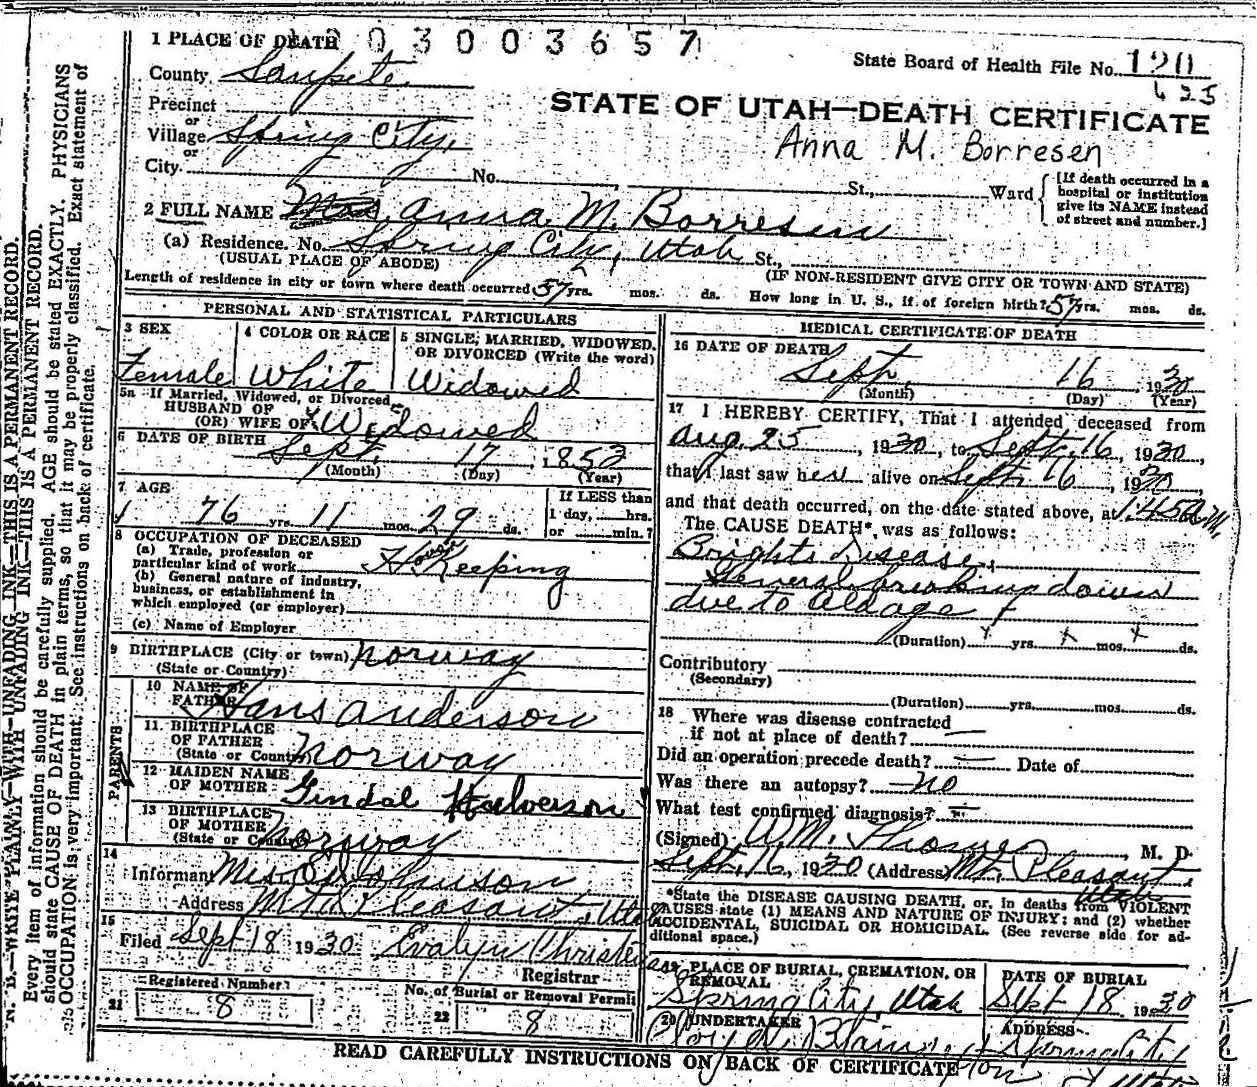 1 PLACE OF DEATH 03003657
State Board of Health File No. 120
425
County Sanpete
STATE OF UTAH—DEATH CERTIFICATE
Precinct
or
Village Spring City,
or
City
Anna M. Borresen
No. St., Ward
[If death occurred in a
hospital or institution
give its NAME instead
of street and number.]
2 FULL NAME Mrs. Anna M. Borresen
(a) Residence. No. Spring City, Utah St.,
(USUAL PLACE OF ABODE) (IF NON-RESIDENT GIVE CITY OR TOWN AND STATE)
Length of residence in city or town where death occurred 57 yrs. mos. ds. How long in U. S., if of foreign birth? 57 yrs. mos. ds.
PERSONAL AND STATISTICAL PARTICULARS
3 SEX
Female
4 COLOR OR RACE
White
5 SINGLE, MARRIED, WIDOWED,
OR DIVORCED (Write the word)
Widowed
5a If Married, Widowed, or Divorced
HUSBAND OF
(OR) WIFE OF Widowed
6 DATE OF BIRTH Sept. 17, 1853
(Month) (Day) (Year)
7 AGE
76 yrs. 11 mos. 29 ds.
If LESS than
1 day, hrs.
or min.?
8 OCCUPATION OF DECEASED
(a) Trade, profession or
particular kind of work House Keeping
(b) General nature of industry,
business, or establishment in
which employed (or employer)
(c) Name of Employer
9 BIRTHPLACE (City or town) Norway
(State or Country)
PARENTS
10 NAME OF
FATHER Hans Anderson
11 BIRTHPLACE
OF FATHER
(State or Country) Norway
12 MAIDEN NAME
OF MOTHER Halverson
13 BIRTHPLACE
OF MOTHER
(State or Country) Norway
14
Informant Johnson
Address Mt. Pleasant, Utah
15
Filed Sept 18 1930 Evalyn
Registrar
Registered Number
21 8
No. of Burial or Removal Permit
22 8
MEDICAL CERTIFICATE OF DEATH
16 DATE OF DEATH
Sept 16, 1930
(Month) (Day) (Year)
17 I HEREBY CERTIFY, That I attended deceased from
Aug 25, 1930, to Sept. 16, 1930,
that I last saw her alive on Sept. 16, 1930,
and that death occurred, on the date stated above, at 1:45 A M.
The CAUSE DEATH*, was as follows:
Brights Disease,
General breaking down
due to old age
(Duration) x yrs. x mos. x ds.
Contributory
(Secondary)
(Duration) yrs. mos. ds.
18 Where was disease contracted
if not at place of death? —
Did an operation precede death? — Date of
Was there an autopsy? no
What test confirmed diagnosis? —
(Signed) W.M. M. D.
Sept. 16, 1930 (Address) Mt. Pleasant,
Utah
*State the DISEASE CAUSING DEATH, or, in deaths from VIOLENT
CAUSES state (1) MEANS AND NATURE OF INJURY; and (2) whether
ACCIDENTAL, SUICIDAL OR HOMICIDAL. (See reverse side for ad-
ditional space.)
19 PLACE OF BURIAL, CREMATION, OR
REMOVAL
Spring City, Utah
DATE OF BURIAL
Sept 18, 1930
20 UNDERTAKER
ADDRESS
Spring City
READ CAREFULLY INSTRUCTIONS ON BACK OF CERTIFICATE
N. B.—WRITE PLAINLY—WITH UNFADING INK—THIS IS A PERMANENT RECORD.
WITH UNFADING INK—THIS IS A PERMANENT RECORD.
Every item of information should be carefully supplied. AGE should be stated EXACTLY. PHYSICIANS
should state CAUSE OF DEATH in plain terms, so that it may be properly classified. Exact statement of
OCCUPATION is very important. See instructions on back of certificate.